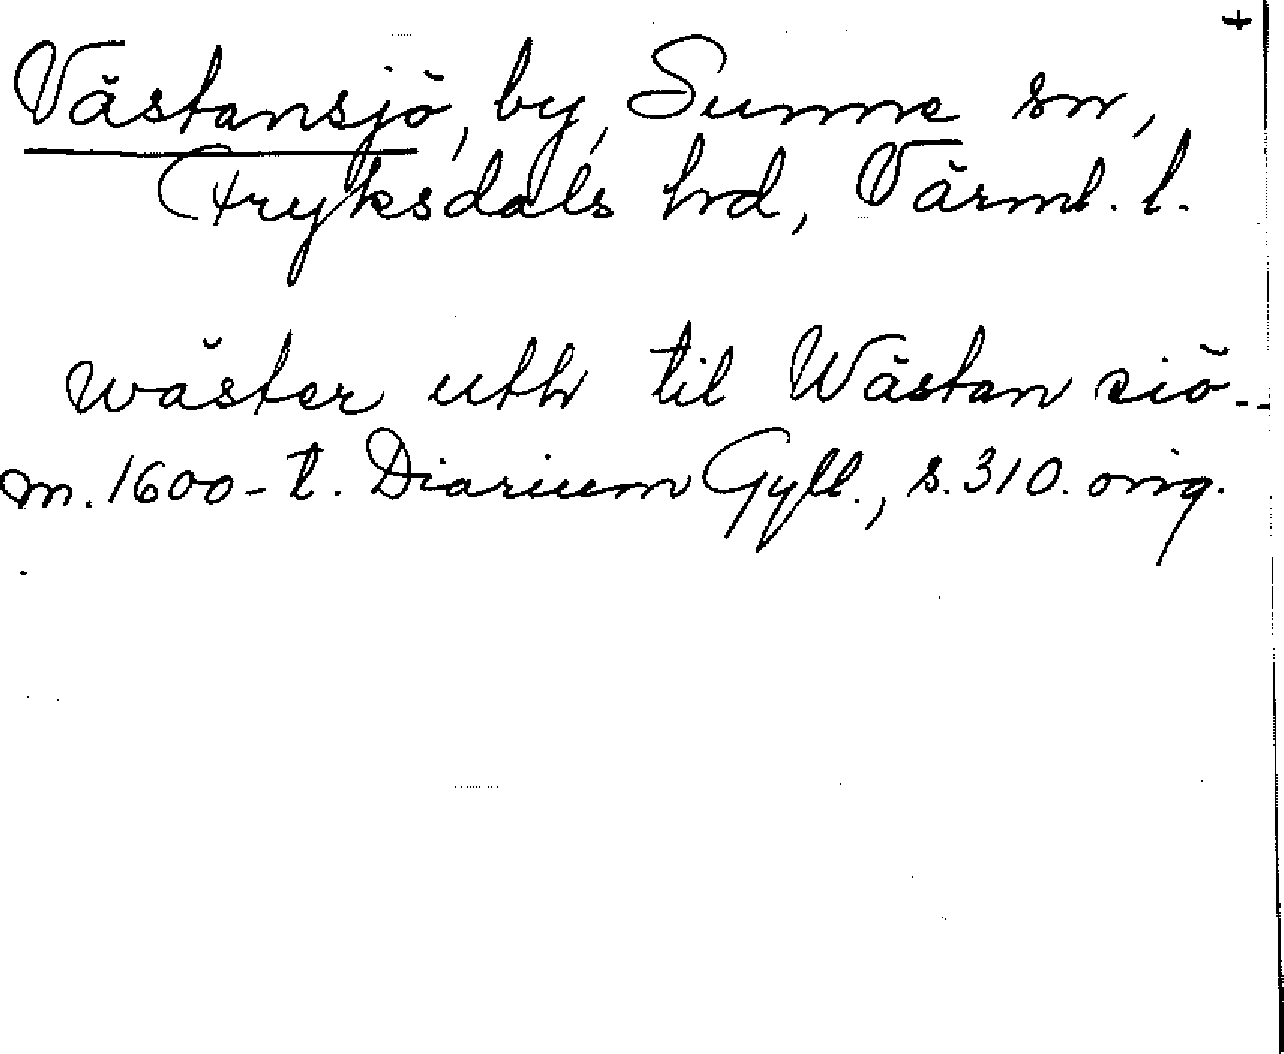 +
Västansjö, by, Sunne sn,
Fryksdals hd, Värml. l.
wäster uth til Wästan siö--
m. 1600-t. Diarium Gyll., s. 310. orig.